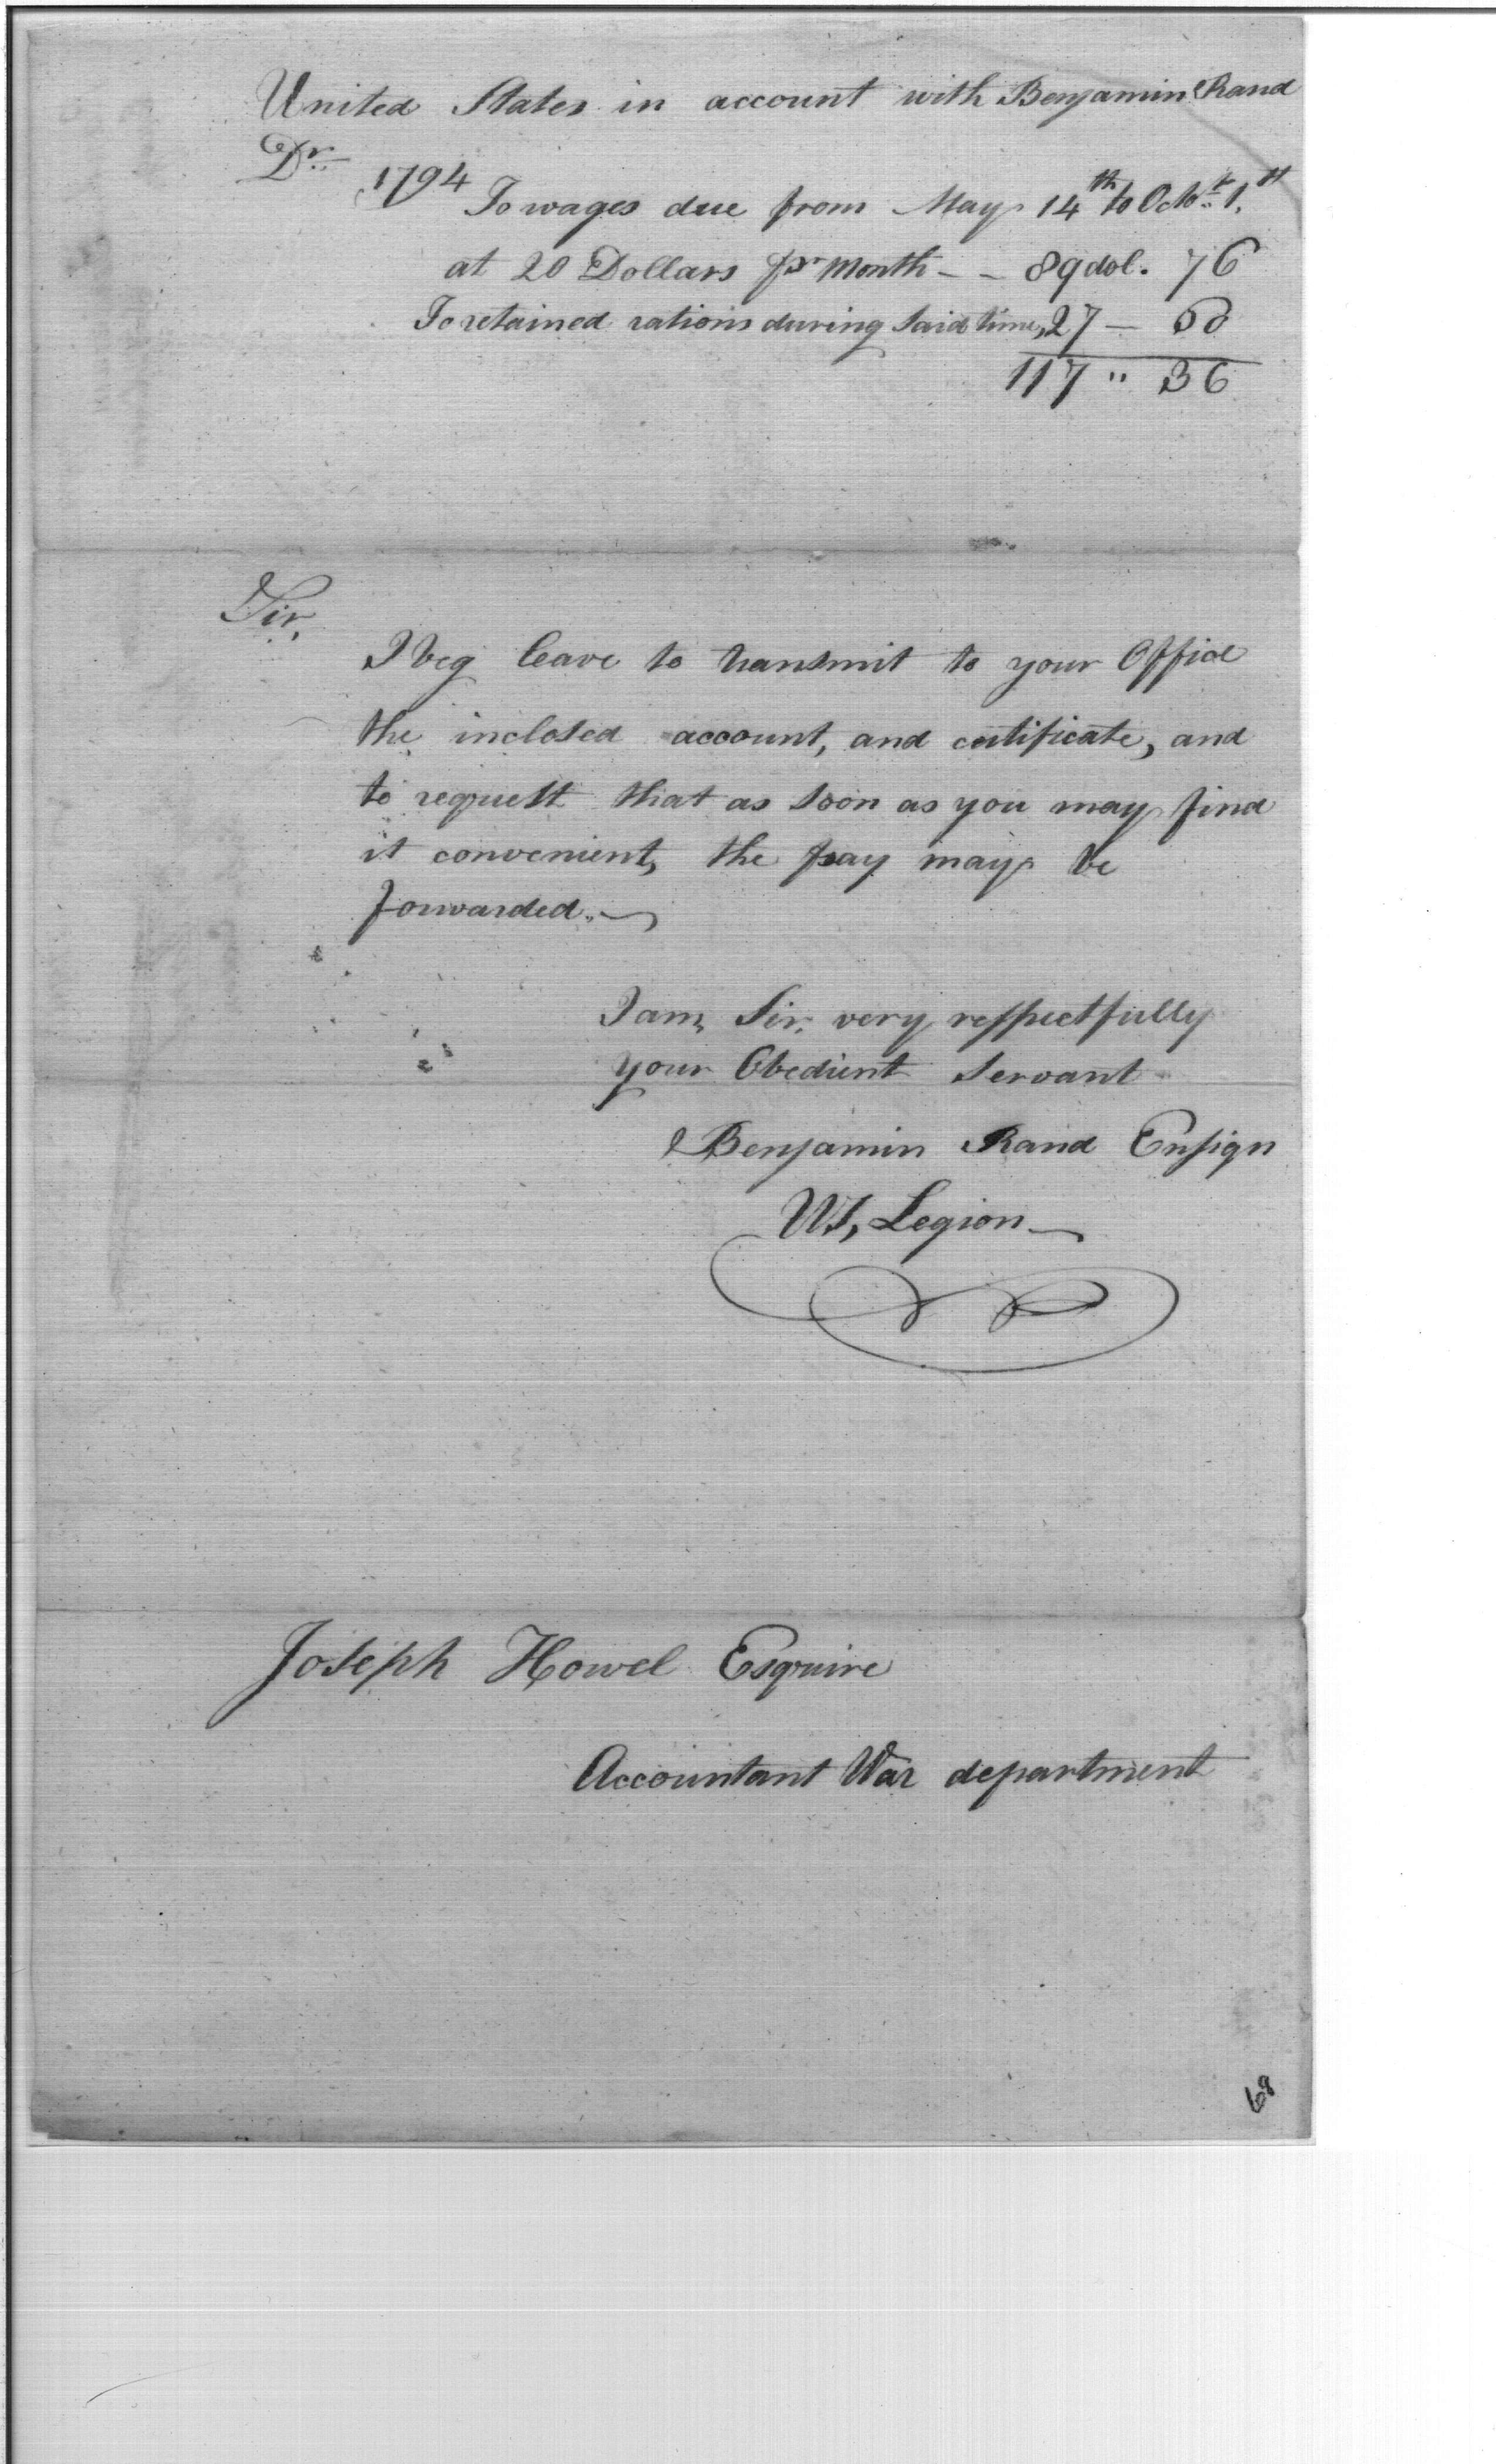 United States in account with Benjamin Rand
Dr
1794
To wages due from May 14th to Octor. 1st
at 20 Dollars pr Month - - 89 dol. 76
To retained rations during said time, 27 - 60
117 " 36
Sir,
I beg leave to transmit to your Office
the inclosed account, and certificate, and
to request that as soon as you may find
it convenient, the pay may be
forwarded.
I am, Sir, very respectfully
your Obedient Servant
Benjamin Rand Ensign
US, Legion
Joseph Howel Esquire
Accountant War department
68